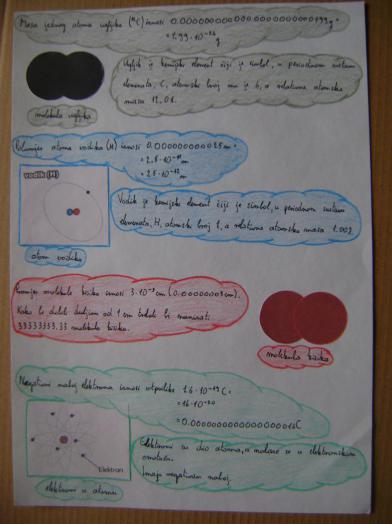 Masa jednog atoma ugljika (¹²C) iznosi 0.0000000000000000000000199g =
= 1.99 · 10⁻²³ g
Ugljik je kemijski element čiji je simbol, u periodnom sustavu
elemenata, C, atomski broj mu je 6, a relativna atomska
masa 12,01.
molekula ugljika
Polumjer atoma vodika (H) iznosi 0.00000000025m =
= 2.5 · 10⁻¹¹ m
= 25 · 10⁻¹² m
Vodik (H)
Vodik je kemijski element čiji je simbol, u periodnom sustavu
elemenata, H, atomski broj 1, a relativna atomska masa 1.002.
atom vodika
Promjer molekule kisika iznosi 3 · 10⁻⁸ cm (0.00000003 cm).
Kako bi dobili duljinu od 1 cm trebali bi nanizati
33333333.33 molekula kisika.
molekula kisika
Negativni naboj elektrona iznosi otprilike 1.6 · 10⁻¹⁹ C =
= 16 · 10⁻²⁰
= 0.00000000000000000016C
Elektron
Elektroni su dio atoma, a nalaze se u elektronskom
omotaču.
Imaju negativan naboj.
elektroni u atomu